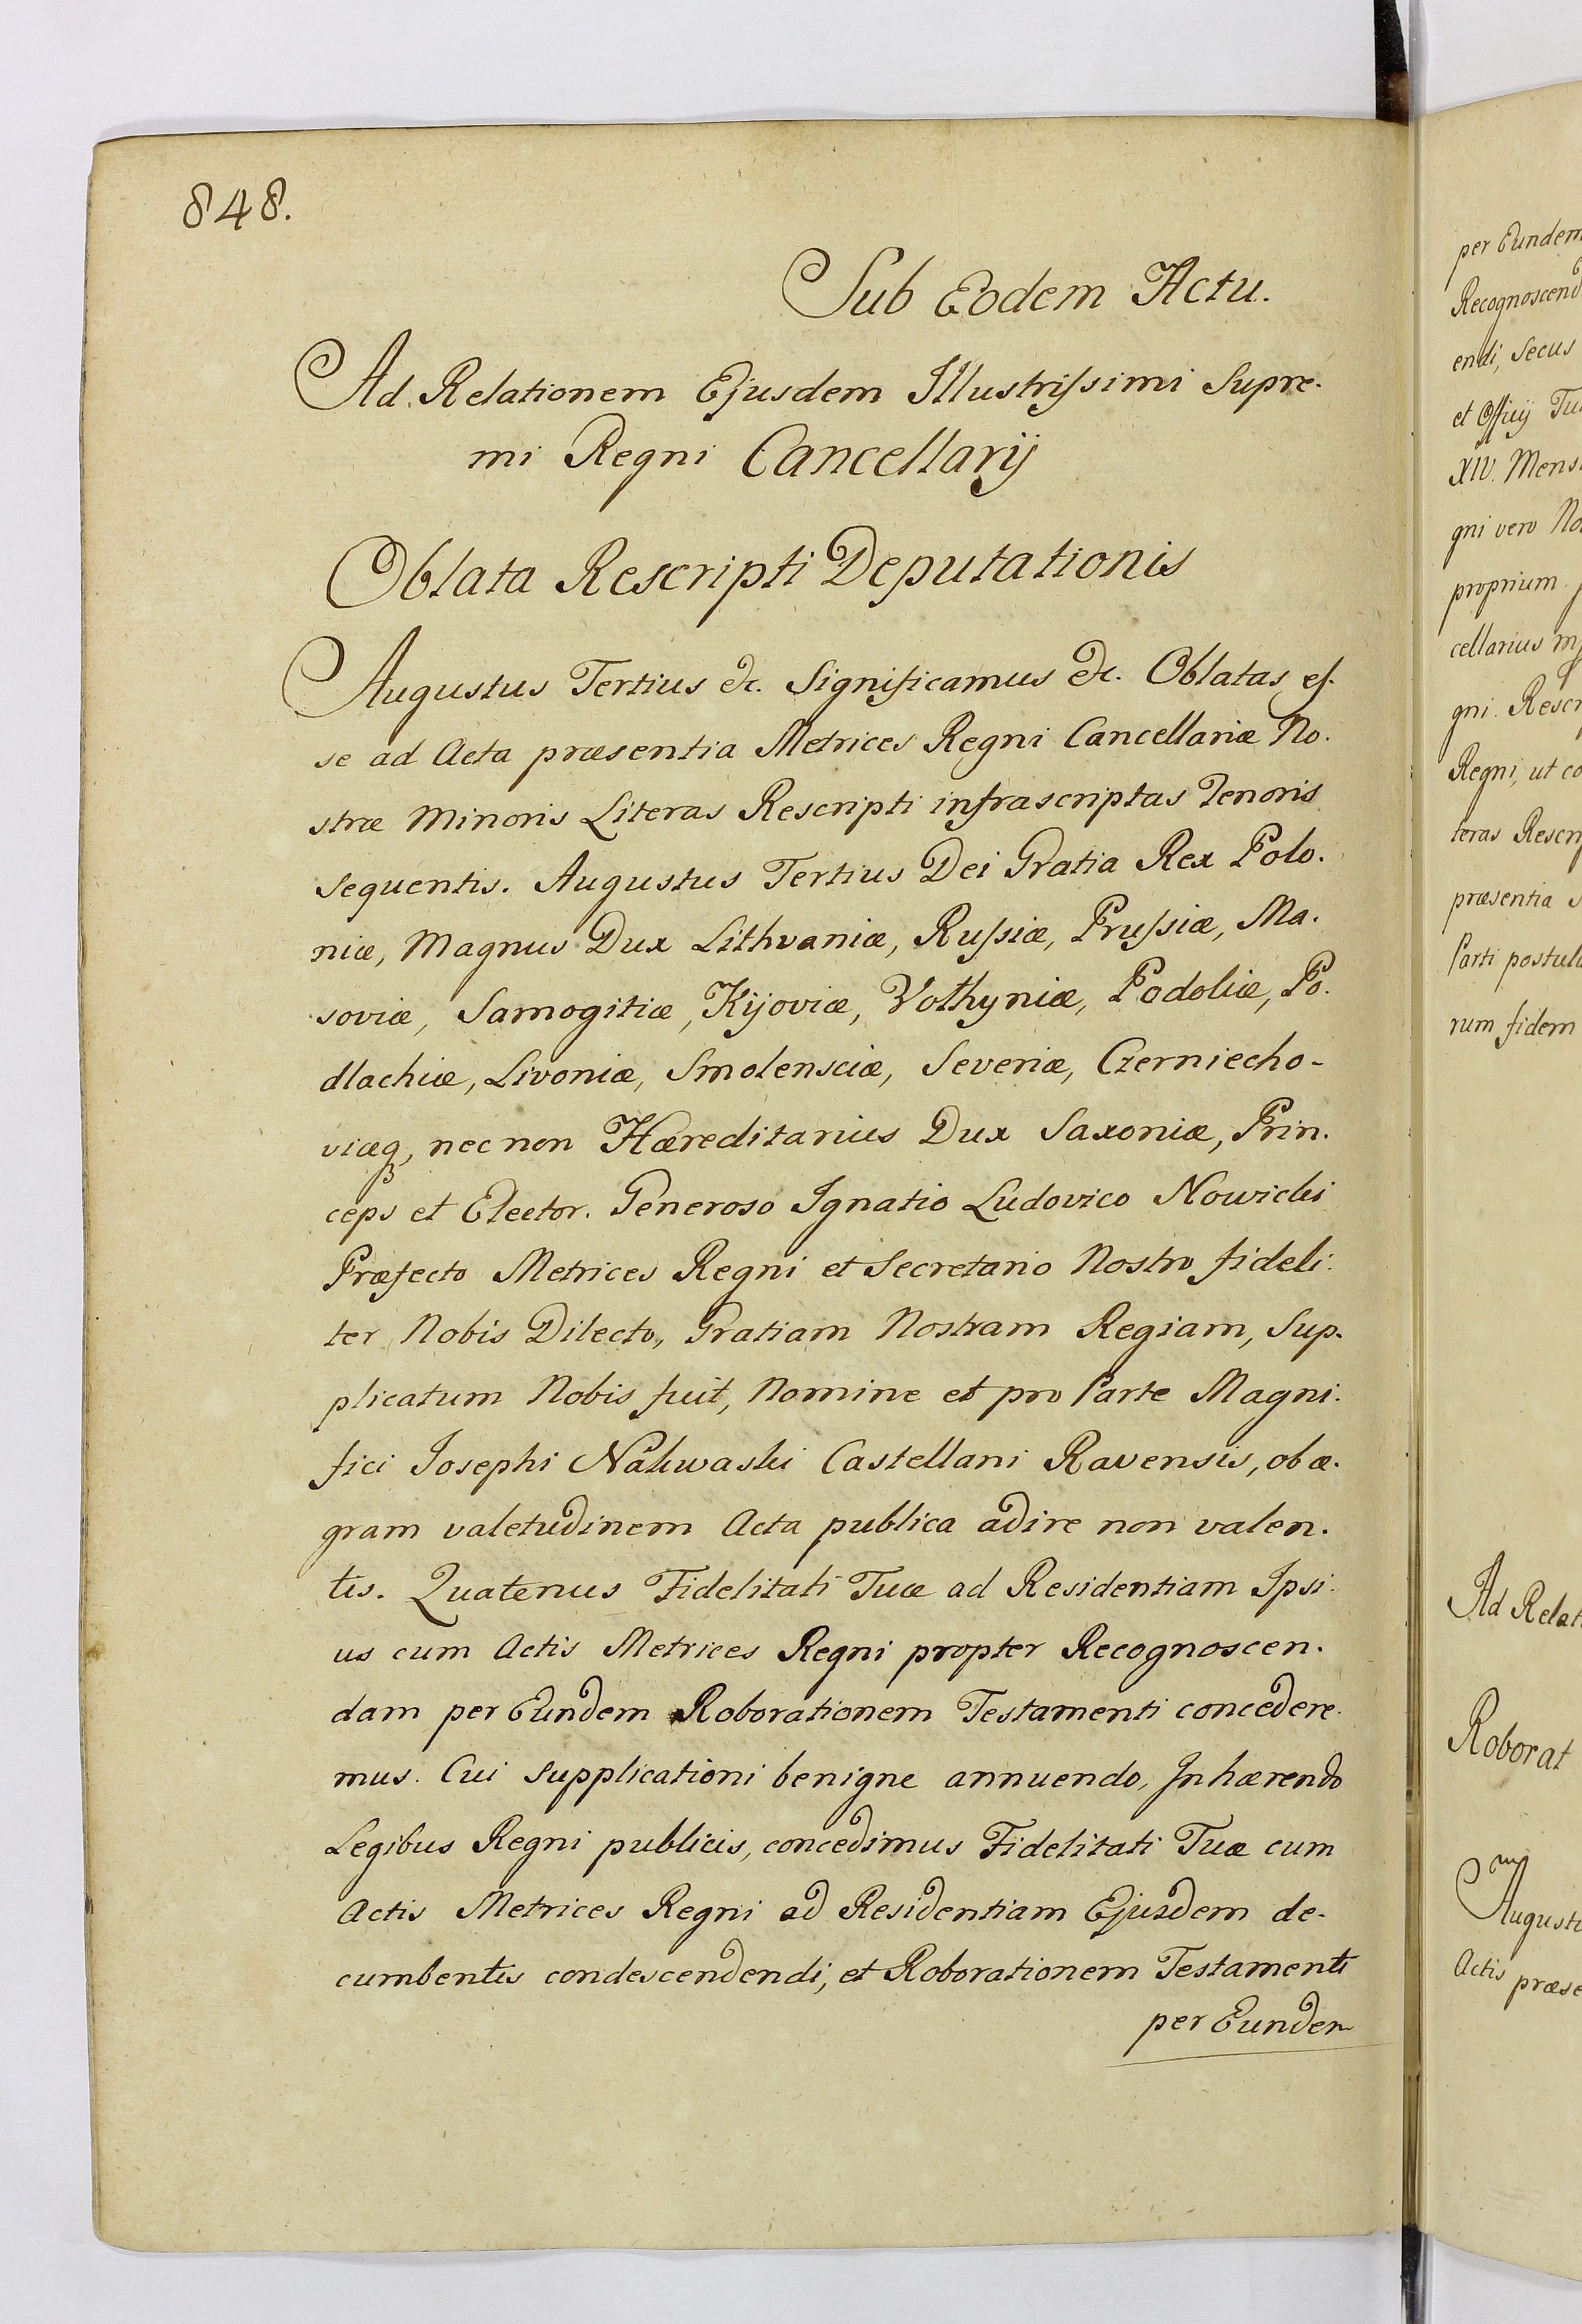 848.
Sub Eodem Actu.
Ad Relationem Ejusdem Illustrissimi Supre-
mi Regni Cancellarij
Oblata Rescripti Deputationis
Augustus Tertius &c. Significamus &c. Oblatas es-
se ad Acta præsentia Metrices Regni Cancellariæ No-
stræ Minoris Literas Rescripti infrascriptas Tenoris
Sequentis. Augustus Tertius Dei Gratia Rex Polo-
niæ, Magnus Dux Lithvaniæ, Russiæ, Prussiæ, Ma-
soviæ, Samogitiæ, Kijoviæ, Volhyniæ, Podoliæ, Po-
dlachiæ, Livoniæ, Smolensciæ, Severiæ, Czerniecho-
viæq, nec non Hæreditarius Dux Saxoniæ, Prin-
ceps et Elector. Generoso Ignatio Ludovico Nowicki
Præfecto Metrices Regni et Secretario Nostro fideli-
ter Nobis Dilecto, Gratiam Nostram Regiam, Sup-
plicatum Nobis fuit, Nomine et pro Parte Magni-
fici Josephi Nakwaski Castellani Ravensis, ob æ-
gram valetudinem Acta publica adire non valen-
tis. Quatenus Fidelitati Tuæ ad Residentiam Ipsi-
us cum Actis Metrices Regni propter Recognoscen-
dam per Eundem Roborationem Testamenti concedere-
mus. Cui Supplicationi benigne annuendo, Inhærendo
Legibus Regni publicis, concedimus Fidelitati Tuæ cum
Actis Metrices Regni ad Residentiam Ejusdem de-
cumbentis condescendendi, et Roborationem Testamenti
per Eundem
per Eundem
Recognoscend
endi, Secus
et Officij Tu
XIV. Mens
gni vero No
proprium
cellarius
gni. Rescr
Regni, ut co
teras Rescrip
præsentia
Parti postula
rum fidem
Ad Relat
Roborat
Augusti
Actis præse